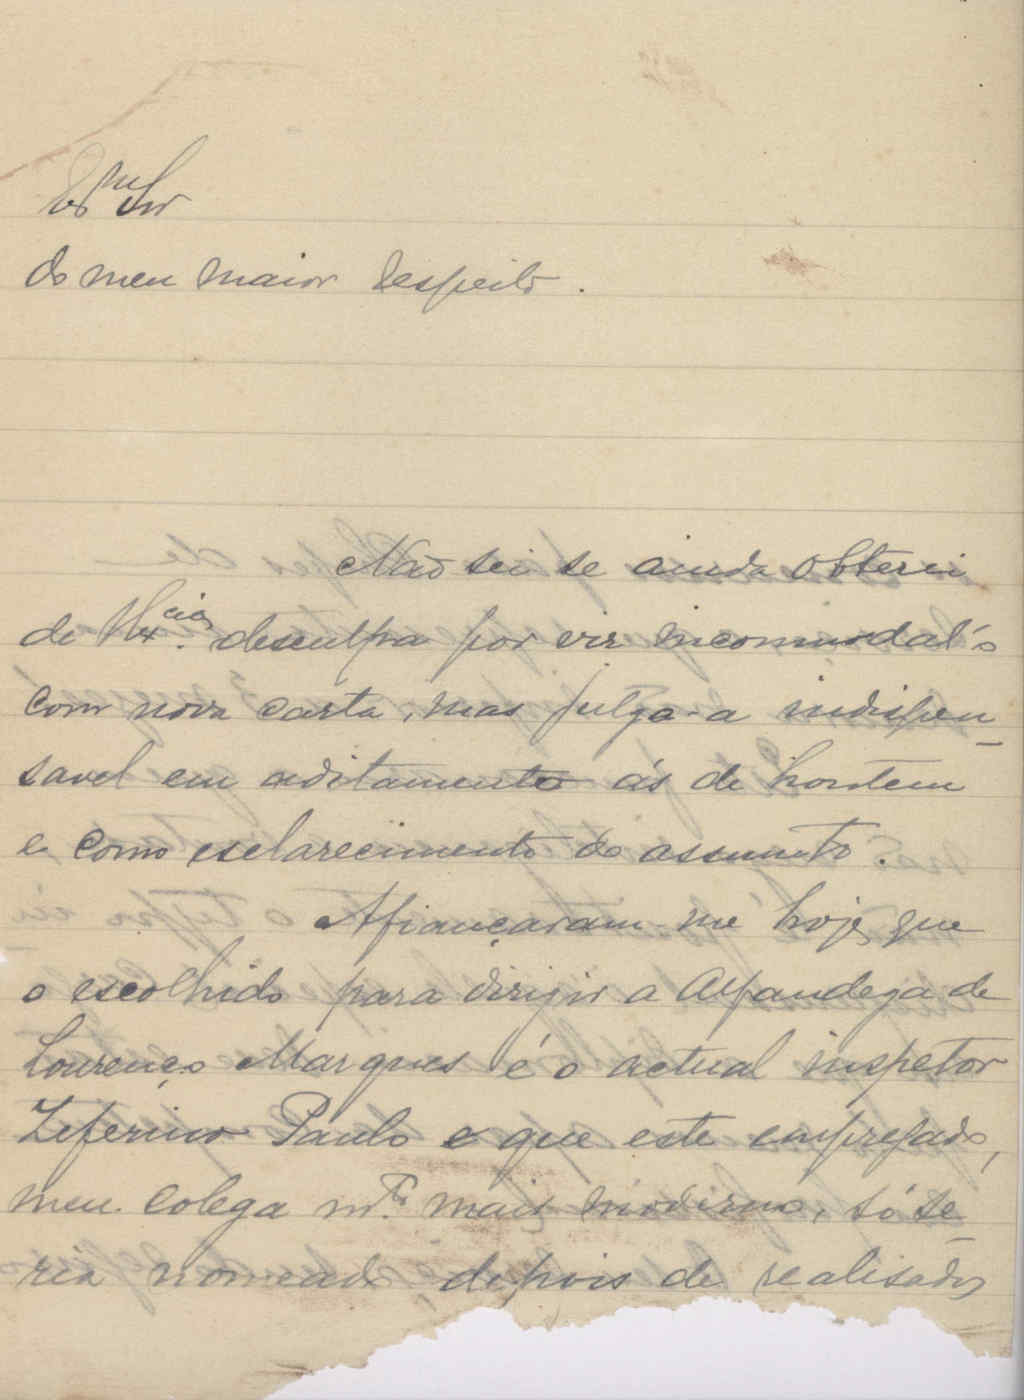 Exmo Snr
do meu maior respeito.
Não sei se ainda obterei
de V. Excia. desculpa por vir incommodal'o
com nova carta, mas julgo-a indispen-
savel em aditamento ás de hontem
e como esclarecimento do assumto.
Afiançaram-me hoje, que
o escolhido para dirigir a Alfandega de
Lourenço Marques é o actual inspetor
Zeferino Paulo e que este empregado,
meu colega mto. mais moderno, só se-
ria nomeado depois de realisados